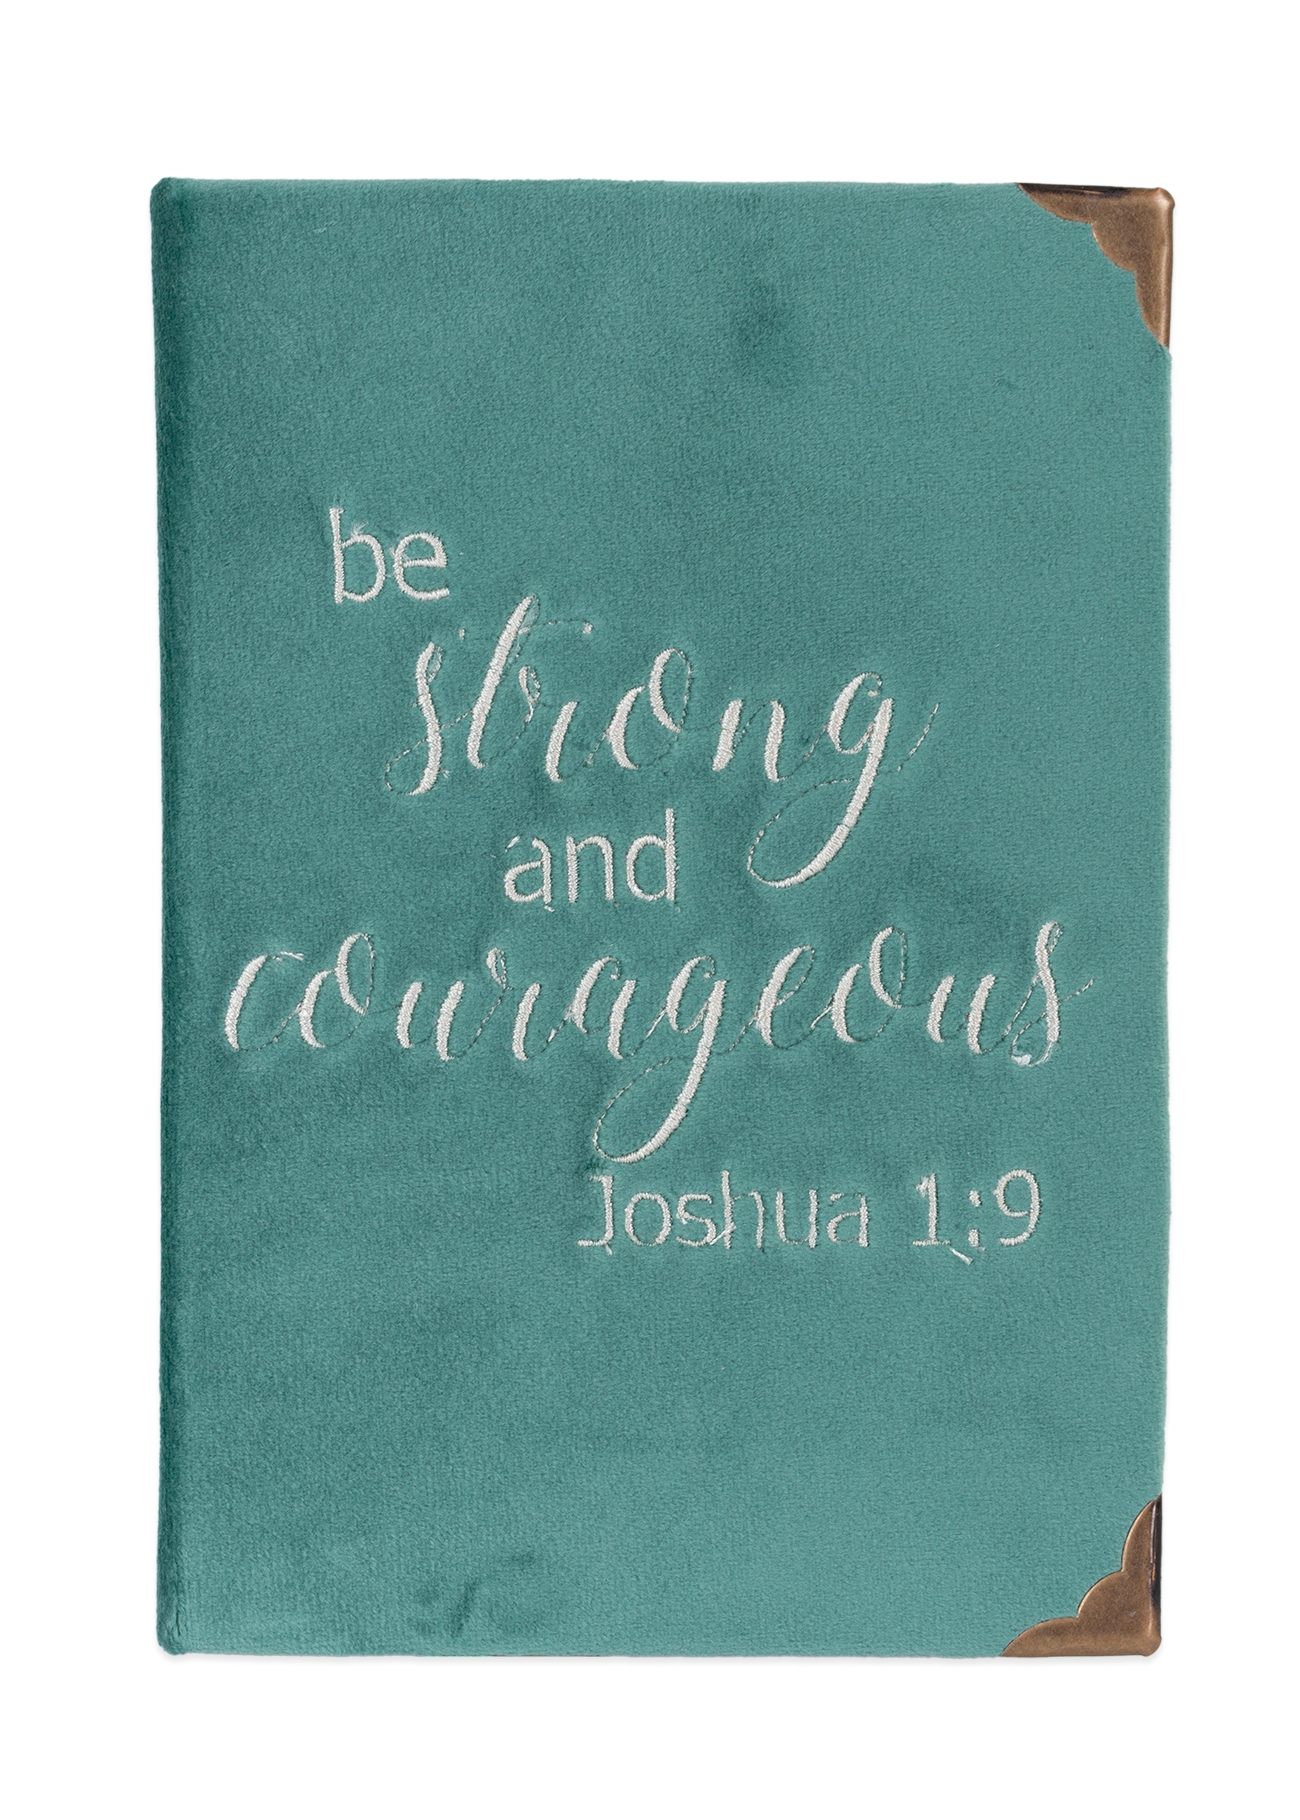 be
strong
and
courageous
Joshua 1:9